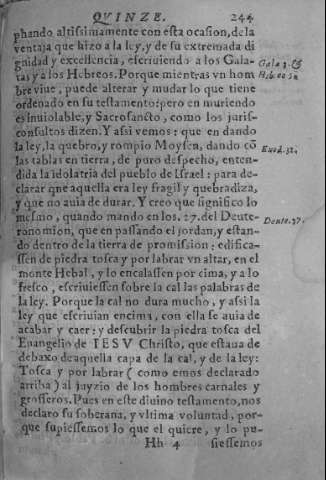 QVINZE. 244
phando altissimamente con esta ocasion, de la
ventaja que hizo a la ley, y de su extremada di
gnidad y excellencia, escriuiendo a los Gala-
tas y à los Hebreos. Porque mientras vn hom
bre viue, puede alterar y mudar lo que tiene
ordenado en su testamento: pero en muriendo
es inuiolable, y Sacrosancto, como los juris-
consultos dizen. Y asi vemos: que en dando
la ley, la quebro, y rompio Moysen, dando cõ
Exod. 32.
las tablas en tierra, de puro despecho, enten-
dida la idolatria del pueblo de Israel: para de-
clarar que aquella era ley fragil y quebradiza,
y que no auia de durar. Y creo que significo lo
mesmo, quando mando en los. 27. del Deute-
Deute. 27.
ronomion, que en passando el Jordan, y estan-
do dentro de la tierra de promission: edifica-
ssen de piedra tosca y por labrar vn altar, en el
monte Hebal, y lo encalassen por cima, y a lo
fresco, escriuiessen sobre la cal las palabras de
la ley. Porque la cal no dura mucho, y asi la
ley que escriuian encima, con ella se auia de
acabar y caer: y descubrir la piedra tosca del
Euangelio de IESV Christo, que estaua de
debaxo de aquella capa de la cal, y de la ley:
Tosca y por labrar (como emos declarado
arriba) al juyzio de los hombres carnales y
grosseros. Pues en este diuino testamento, nos
declaro su soberana, y vltima voluntad, por-
que supiessemos lo que el quiere, y lo pu-
Hh 4 siessemos